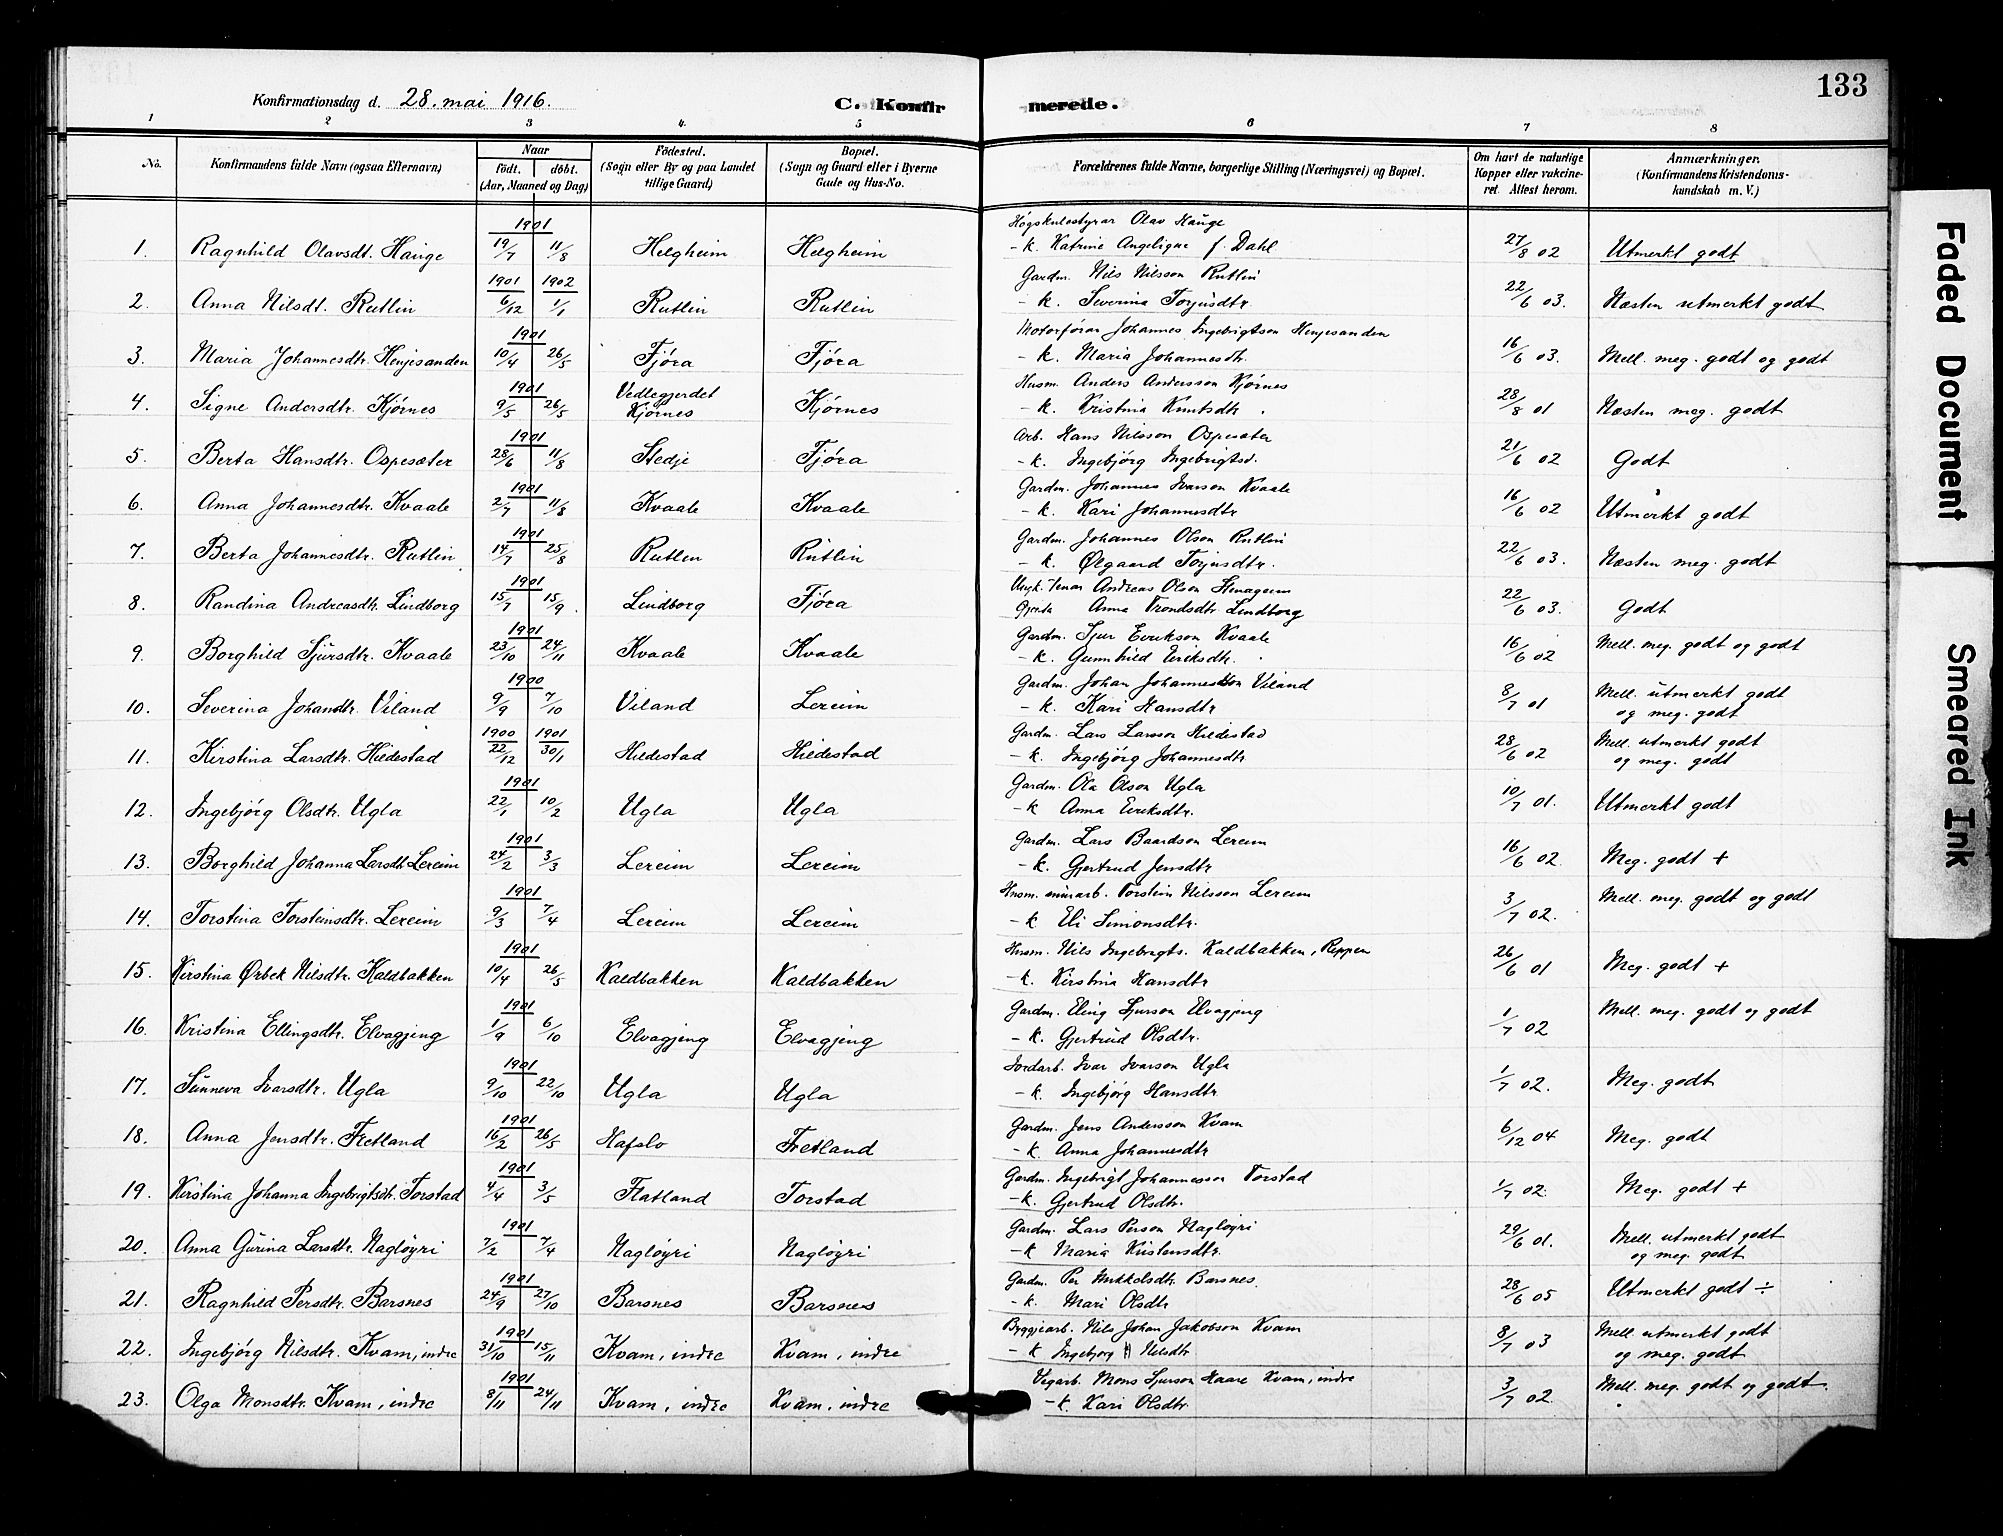 133
Konfirmationsdag d. 28. mai 1916.
C. Konfir merede.
1 2 3 4. 5 6 7 8
No. Konfirmandens fulde Navn (ogsaa Efternavn) Naar Födt. döbt. (Aar, Maaned og Dag) Födested. (Sogn eller By og paa Landet tillige Gaard) Bopæl. (Sogn og Gaard eller i Byerne Gade og Hus-No. Forældrenes fulde Navne, borgerlige Stilling (Næringsvei) og Bopæl. Om havt de naturlige Kopper eller vakcineret. Attest herom. Anmærkninger. (Konfirmandens Kristendomskundskab m. V.)
1901 Högskulestyrar Olav Hauge
1. Ragnhild Olavsdt. Hauge 19/7 11/8 Helgheim Helgheim - k. Katrine Angelique f. Dahl 27/8 02 Utmerkt godt
1901 1902 Gardm. Nils Nilsson Rutlin
2. Anna Nilsdt. Rutlin 6/12 1/1 Rutlin Rutlin - k. Severina Torjusdtr. 22/6 03. Næsten utmerkt godt
1901 Motorförar Johannes Ingebrigtson Henjesanden
3. Maria Johannesdtr. Henjesanden 10/4 26/5 Fjöra Fjöra - k. Maria Johannesdtr. 16/6 03. Mell. meg. godt og godt
1901 Vedlegjerdet Husm. Anders Andersson Kjörnes
4. Signe Andersdtr. Kjörnes 9/5 26/5 Kjörnes Kjörnes - k. Kristina Knutsdtr. 28/8 01 Næsten meg. godt
1901 Arb. Hans Nilsson Ospesæter
5. Berta Hansdtr. Ospesæter 28/6 11/8 Stedje Fjöra - k. Ingebjörg Ingebrigtsd. 21/6 02 Godt
1901 Gardm. Johannes Ivarson Kvaale
6. Anna Johannesdtr. Kvaale 2/7 11/8 Kvaale Kvaale - k. Kari Johannesdtr 16/6 02 Utmerkt godt
1901 Gardm. Johannes Olson Rutlin
7. Berta Johannesdtr. Rutlin 14/7 25/8 Rutlin Rutlin - k. Ølgaard Torjusdtr. 22/6 03. Næsten meg. godt
1901 Andreas Olson
8. Randina Andreasdtr. Lindborg 15/7 15/9. Lindborg Fjöra Gjenta Anna Trondsdtr. Lindborg 22/6 03. Godt
1901 Gardm. Sjur Eirikson Kvaale
9. Borghild Sjursdtr. Kvaale 23/10 24/11 Kvaale Kvaale - k. Gunnhild Eiriksdtr. 16/6 02 Mell. meg. godt og godt
1900 Gardm. Johan Johannesson Viland
10. Severina Johandtr. Viland 9/9 7/10 Viland Lereim - k. Kari Hansdtr 8/7 01 Mell. utmerkt godt og meg. godt
1900 1901 Gardm. Lars Larsson Hildestad
11. Kirstina Larsdtr. Hildestad 22/12 30/1 Hildestad Hildestad - k. Ingebjörg Johannesdtr 28/6 02 Mell. utmerkt godt og meg. godt
1901 Gardm. Ola Olson Ugla
12. Ingebjörg Olsdtr. Ugla 22/1 10/2 Ugla Ugla - k Anna Eiriksdtr. 10/7 01. Utmerkt godt
1901 Gardm. Lars Baardson Lereim
13. Borghild Johanna Larsdt. Lereim 24/2 3/3 Lereim Lereim - k. Gjertrud Jensdtr 16/6 02. Meg. godt +
1901 Husm. murarb. Torstein Nilsson Lereim
14. Torstina Torsteinsdtr. Lereim 9/3 7/4 Lereim Lereim - k Eli Simonsdtr. 3/7 02. Mell. meg. godt og godt
1901 Husm. Nils Ingebrigts. Kaldbakken, Reppen
15. Kirstina Ørbek Nilsdtr. Kaldbakken 10/4 26/5 Kaldbakken Kaldbakken - k. Kirstina Hansdtr 26/6 01 Meg. godt +
1901 Gardm. Eling Sjurson Elvagjeng
16. Kristina Ellingsdtr. Elvagjeng 1/9 6/10 Elvagjeng Elvagjeng - k. Gjertrud Olsdtr. 1/7 02 Mell. meg. godt og godt
1901 Jordarb. Ivar Ivarson Ugla
17. Sunneva Ivarsdtr. Ugla 9/10 22/10 Ugla Ugla - k. Ingebjörg Hansdtr 1/7 02. Meg. godt
1901 Gardm. Jens Andersson Kvam
18. Anna Jensdtr. Fretland 16/2 26/5 Hafslo Fretland - k. Anna Johannesdtr 6/12 04 Meg. godt
1901 Gardm. Ingebrigt Johannesson Torstad
19. Kirstina Johanna Ingebrigtsdtr. Torstad 4/4 3/5 Flatland Torstad - k. Gjertrud Olsdtr. 1/7 02. Meg. godt +
1901 Gardm. Lars Person Naglöyri
20. Anna Gurina Larsdtr. Naglöyri 7/2 7/4 Naglöyri Naglöyri - k Maria Kristensdtr. 29/6 01. Mell. utmerkt godt og meg. godt
1901 Gardm. Per Mikkelsdtr. Barsnes
21. Ragnhild Persdtr. Barsnes 24/9 27/10 Barsnes Barsnes - k. Mari Olsdtr 28/6 05 Utmerkt godt ÷
1901 Byggjearb. Nils Johan Jakobson Kvam
22. Ingebjörg Nilsdtr. Kvam, indre 31/10 15/11 Kvam, indre Kvam, indre - k Ingebjorg Nilsdtr. 8/7 03 Mell. utmerkt godt og meg. godt
1901 Vegarb. Mons Sjurson Haare Kvam, indre
23. Olga Monsdtr. Kvam, indre 8/11 24/11 Kvam, indre Kvam, indre - k. Kari Olsdtr. 3/7 02. Mell. meg. godt og godt.
Faded Document
Smeared Ink